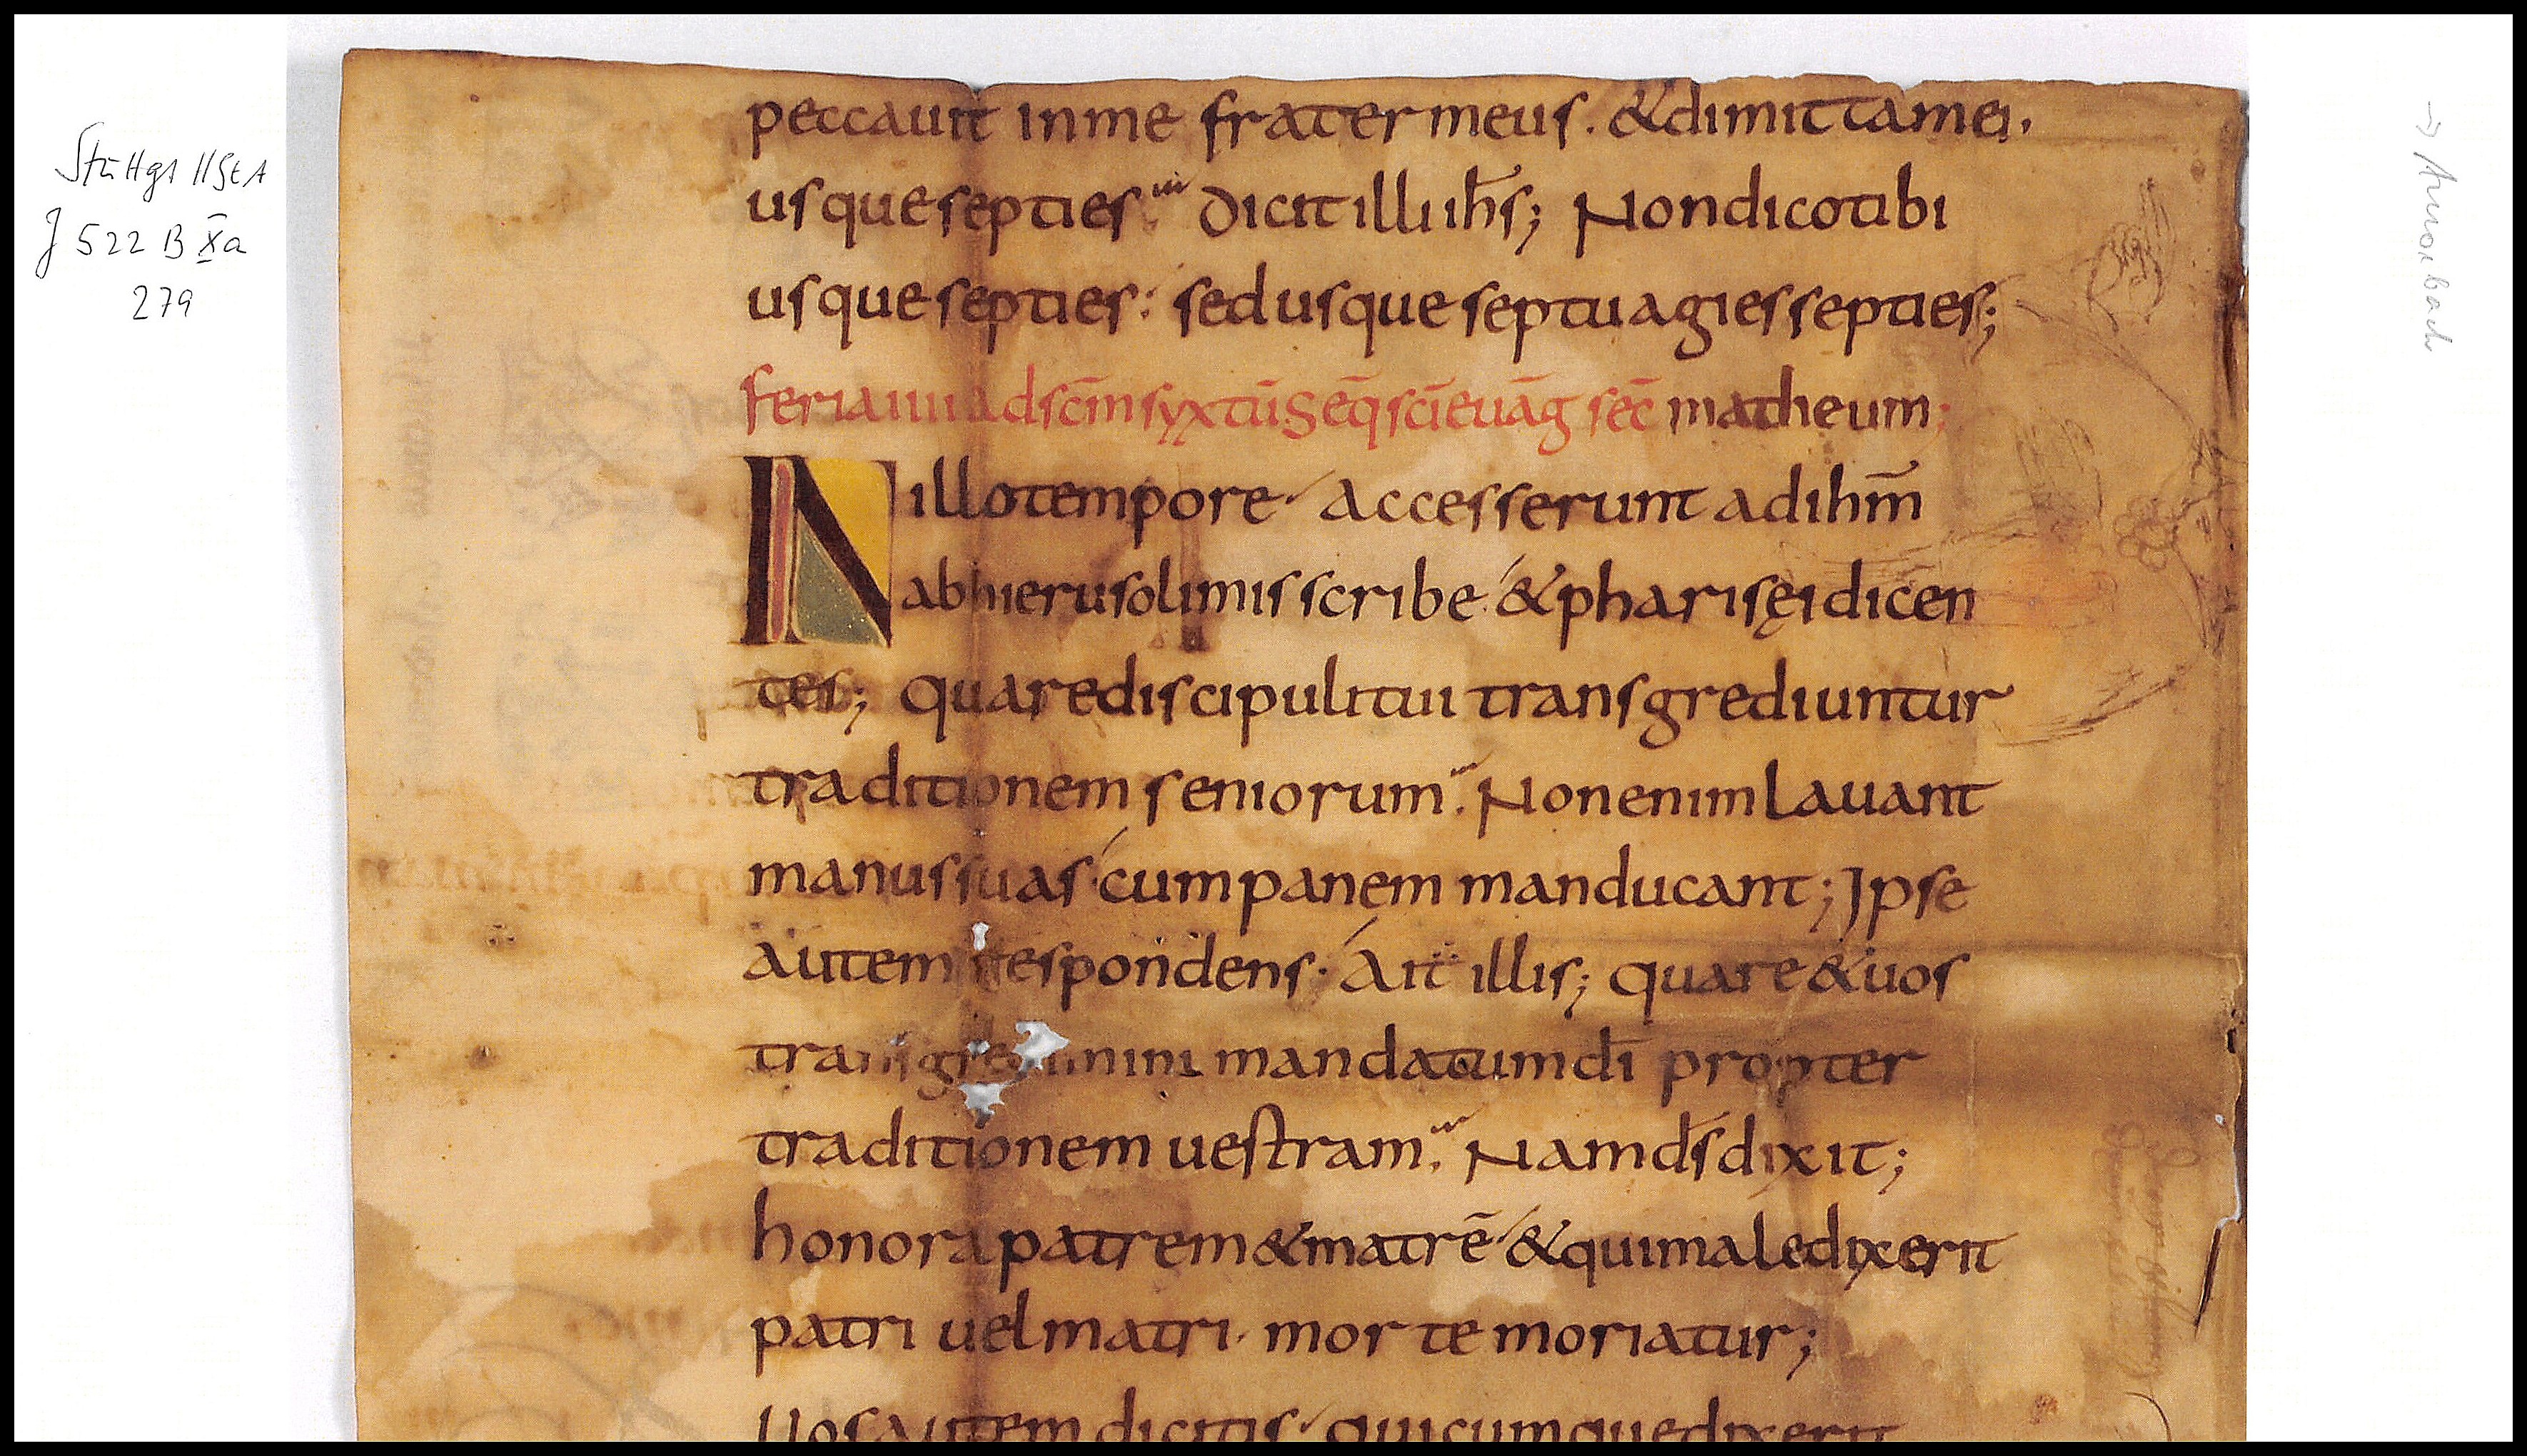 Stuttgt HStA
J 522 B Xa
279
→ Amorbach
peccauit inme frater meus. &dimittamei.
usquesepties dicit illi ih̄s; Nondicotibi
usquesepties: sed usque septuagiessepties;
feria iiii ad sc̄m syxtū Seq̄ sc̄i euāg sēc matheum;
IN illotempore accesserunt adihm̄
abhierusolimis scribe &pharisęi dicen
tes; quare discipuli tui transgrediuntur
traditionem seniorum. Non enim lauant
manus suas cum panem manducant; Ipse
autem respondens. Ait illis; quare &uos
transgredimini mandatum dī propter
traditionem uestram. Nam ds̄ dixit;
honora patrem &matrē &qui maledixerit
patri uel matri. morte moriatur;
Uos autem dicitis quicumque dixerit